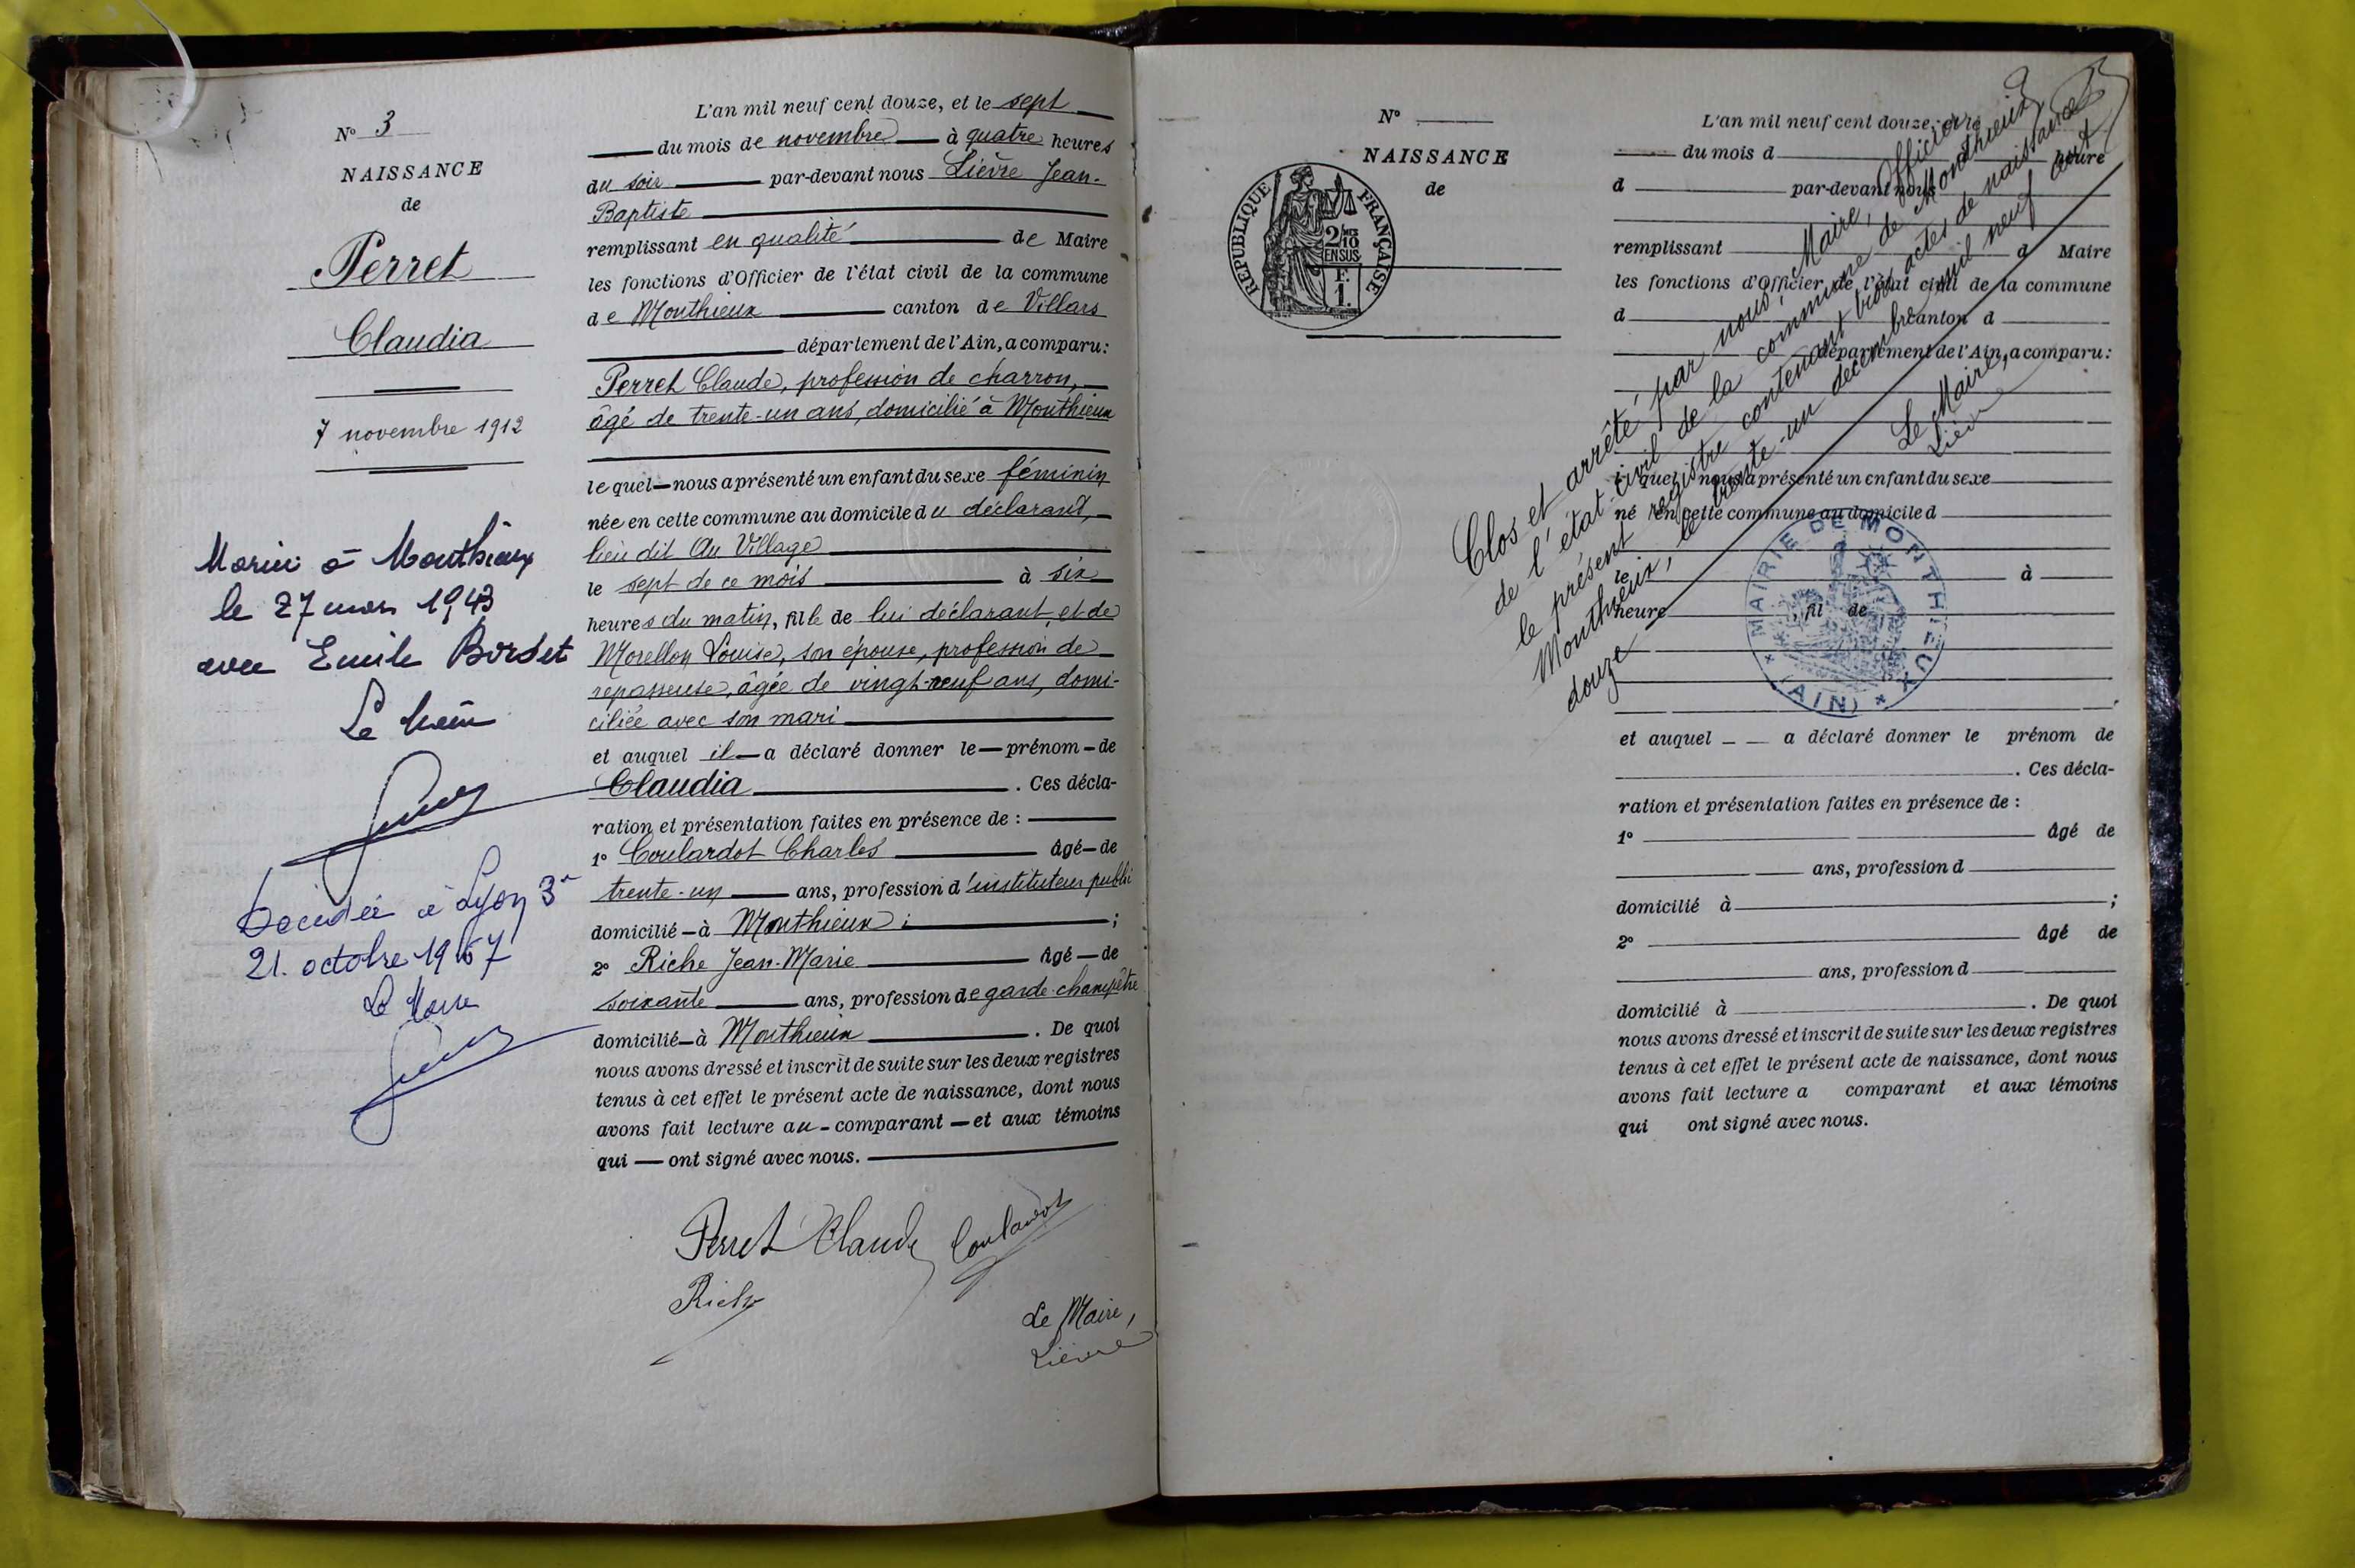 N° 3
NAISSANCE
de
Perret
Claudia
7 novembre 1912
à Monthieux
le 27 mars 1943
avec Emile
Le
Décédée à Lyon 3e
21. octobre 1967
Le Maire
L'an mil neuf cent douze, et le sept
du mois de novembre à quatre heures
du soir par-devant nous Lièvre Jean-
Baptiste
remplissant en qualité de Maire
les fonctions d'Officier de l'état civil de la commune
de Monthieux canton de Villars
département de l'Ain, a comparu :
Perret Claude, profession de charron,
âgé de trente-un ans, domicilié à Monthieux
lequel nous a présenté un enfant du sexe féminin
née en cette commune au domicile du déclarant,
lieu dit Au Village
le sept de ce mois à six
heures du matin, fille de lui déclarant, et de
Morellon Louise, son épouse, profession de
repasseuse, âgée de vingt-neuf ans, domi-
ciliée avec son mari
et auquel il a déclaré donner le prénom de
Claudia. Ces décla-
ration et présentation faites en présence de :
1° Coulardot Charles âgé de
trente-un ans, profession d'instituteur public
domicilié à Monthieux ;
2° Riche Jean-Marie âgé de
soixante ans, profession de garde-champêtre
domicilié à Monthieux. De quoi
nous avons dressé et inscrit de suite sur les deux registres
tenus à cet effet le présent acte de naissance, dont nous
avons fait lecture au comparant et aux témoins
qui ont signé avec nous.
Perret Claude Coulardot
Riche
Le Maire,
Lièvre
N°
NAISSANCE
de
REPUBLIQUE FRANÇAISE
2/10
EN SUS
F.
1.
L'an mil neuf cent douze, et le
du mois d heure
d par-devant nous
remplissant d Maire
les fonctions d'Officier de l'état civil de la commune
d canton d
département de l'Ain, a comparu :
lequel nous a présenté un enfant du sexe
né en cette commune au domicile d
le à
heure , fil de
et auquel a déclaré donner le prénom de
. Ces décla-
ration et présentation faites en présence de :
1° âgé de
ans, profession d
domicilié à ;
2° âgé de
ans, profession d
domicilié à . De quoi
nous avons dressé et inscrit de suite sur les deux registres
tenus à cet effet le présent acte de naissance, dont nous
avons fait lecture a comparant et aux témoins
qui ont signé avec nous.
Clos et arrêté par nous, Maire, Officier
de l'état civil de la commune de Monthieux
le présent registre contenant trois actes de naissance
Monthieux, le trente-un décembre mil neuf cent
douze
Le Maire,
Lièvre
MAIRIE DE MONTHIEUX
(AIN)